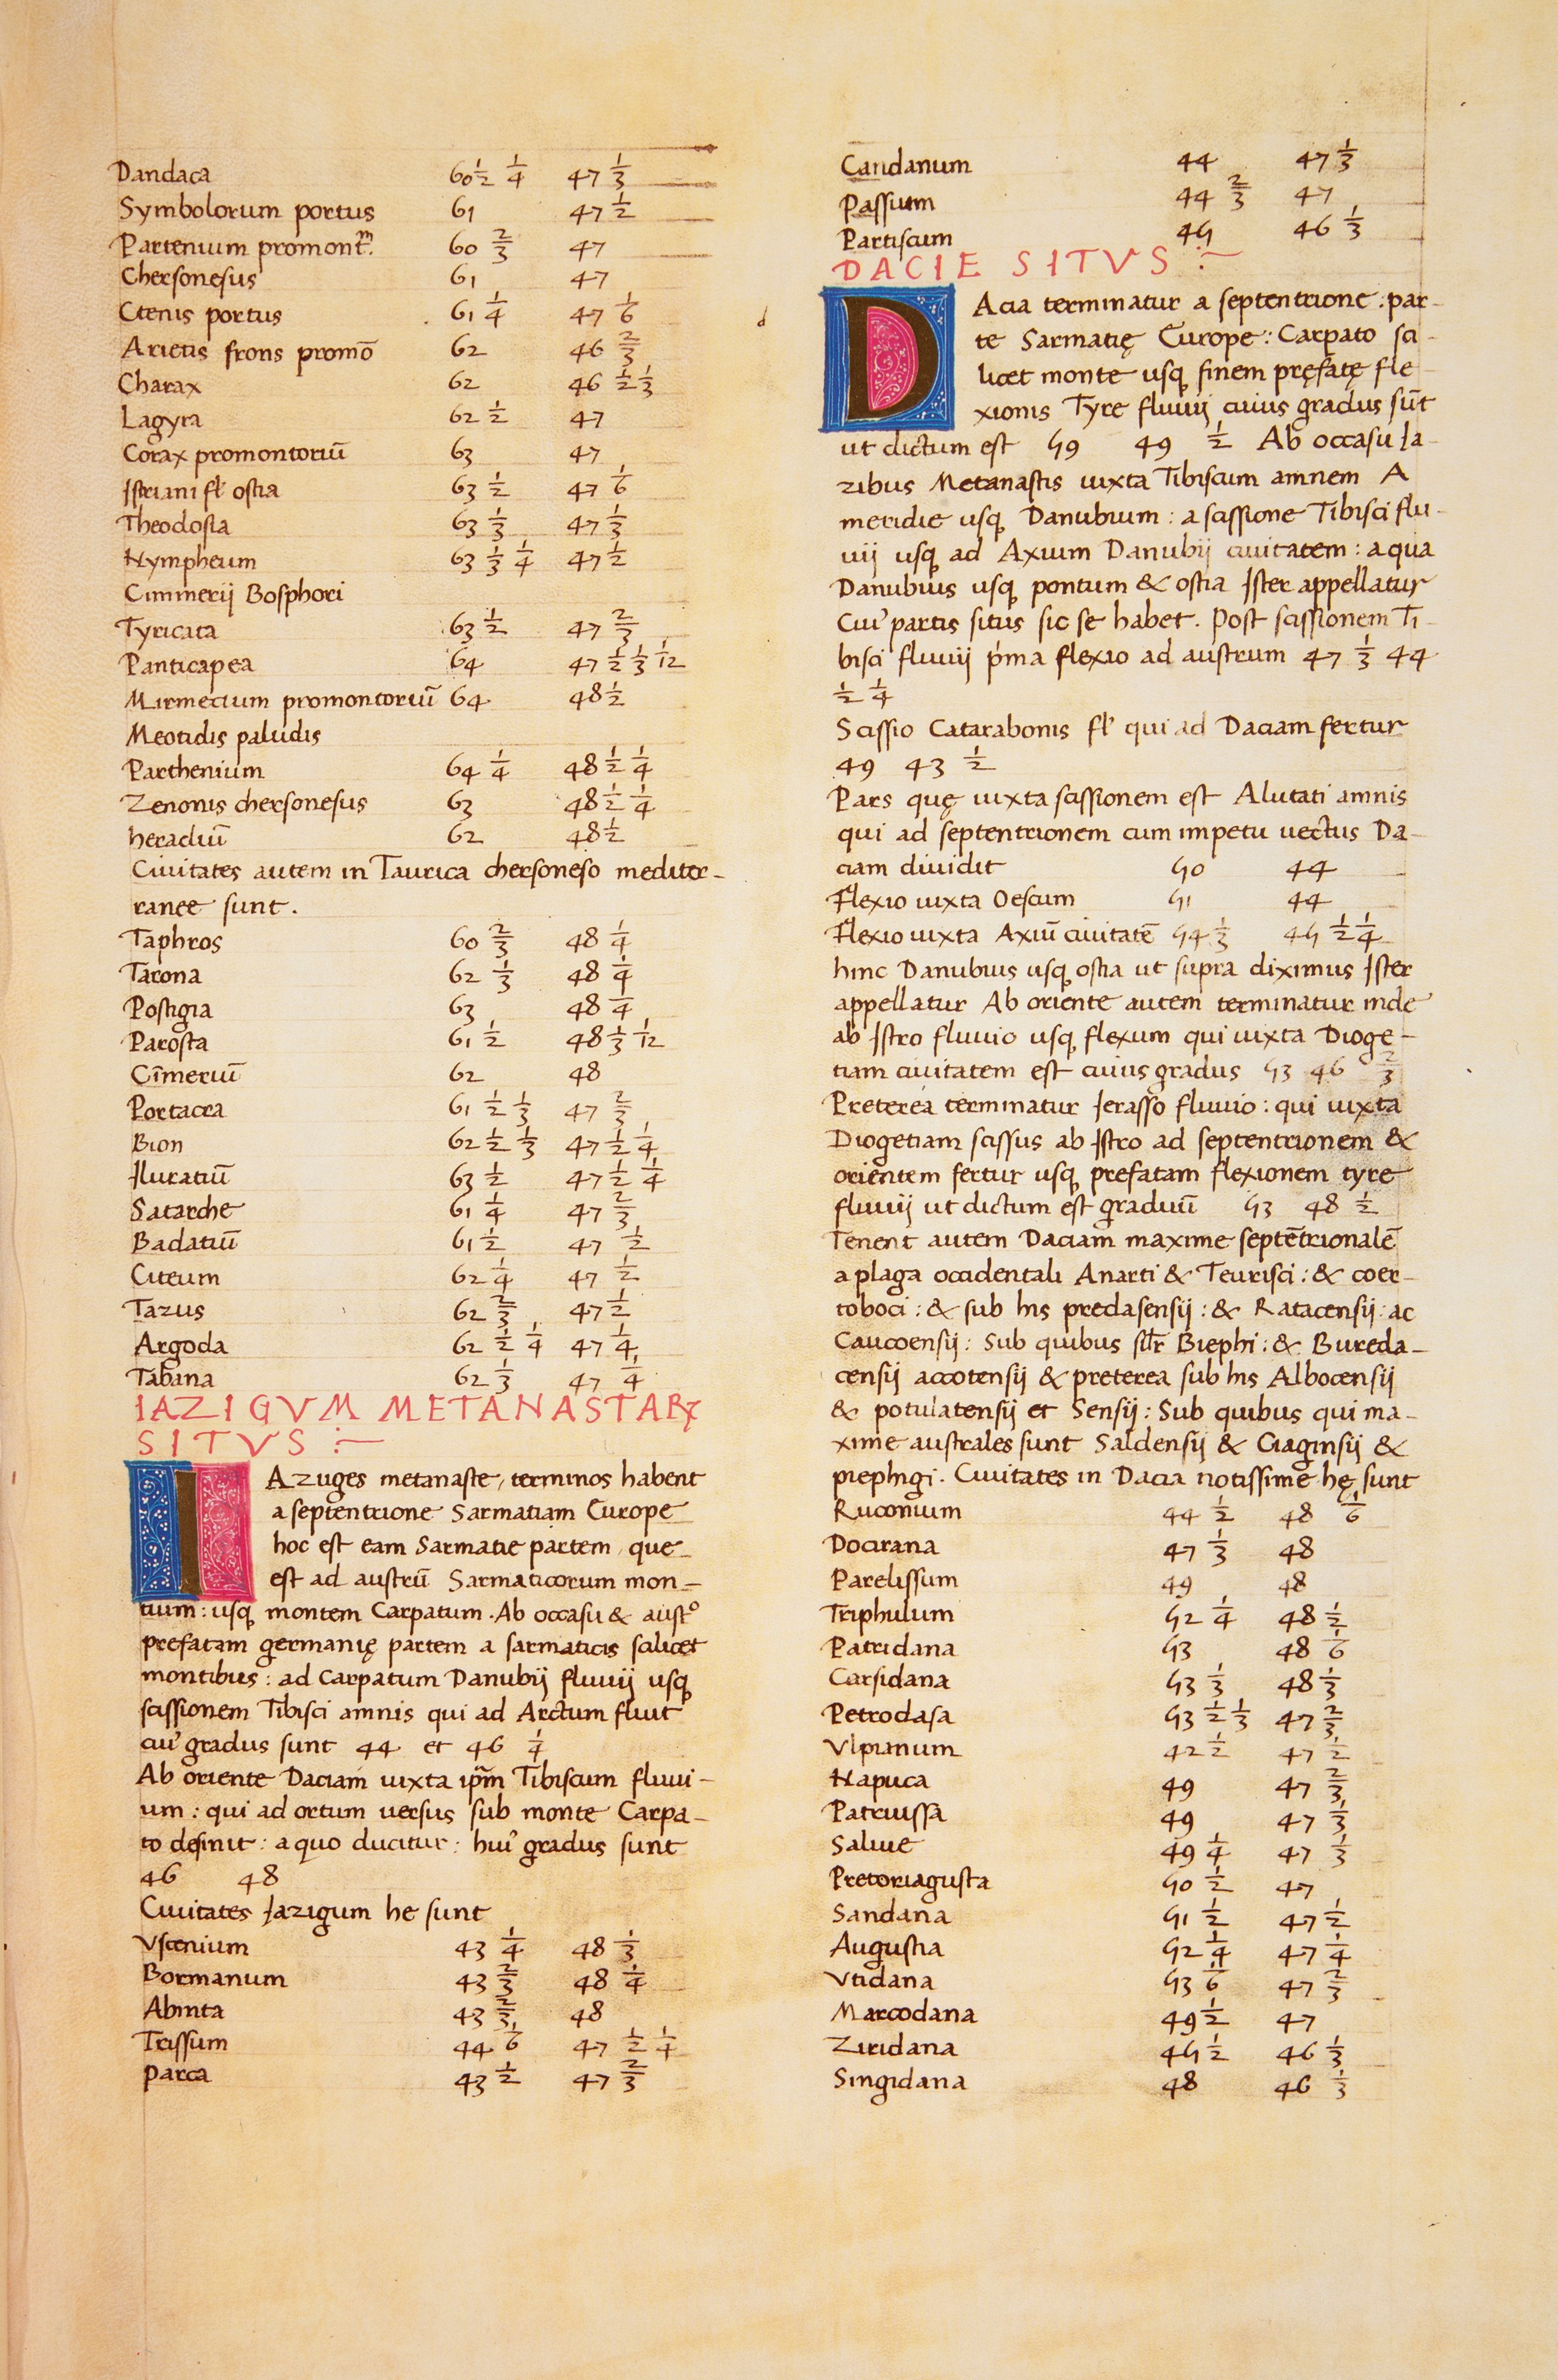 Dandaca 60 1/2 1/4 47 1/3
Symbolorum portus 61 47 1/2
Partenium promont.m 60 2/3 47
Chersonesus 61 47
Ctenis portus 61 1/4 47 1/6
Arietis frons promō 62 46 2/3
Charax 62 46 1/2 1/3
Lagyra 62 1/2 47
Corax promontoriū 63 47
Istriani fl' ostia 63 1/2 47 1/6
Theodosia 63 1/3 47 1/3
Nympheum 63 1/3 1/4 47 1/2
Cimmerij Bosphori
Tyricata 63 1/2 47 2/3
Panticapea 64 47 1/2 1/3 1/12
Mirmecium promontoriū 64 48 1/2
Meotidis paludis
Parthenium 64 1/4 48 1/2 1/4
Zenonis chersonesus 63 48 1/2 1/4
heracliū 62 48 1/2
Ciuitates autem in Taurica chersoneso mediter-
ranee sunt.
Taphros 60 2/3 48 1/4
Tarona 62 1/3 48 1/4
Postigia 63 48 1/4
Parosta 61 1/2 48 1/3 1/12
Cīmeriū 62 48
Portacra 61 1/2 1/3 47 2/3
Bion 62 1/2 1/3 47 1/2 1/4
Iluratiū 63 1/2 47 1/2 1/4
Satarche 61 1/4 47 2/3
Badatiū 61 1/2 47 1/2
Citeum 62 1/4 47 1/2
Tazus 62 2/3 47 1/2
Argoda 62 1/2 1/4 47 1/4
Tabana 62 1/3 47 1/4
IAZIGVM METANASTARꝜ
SITVS
IAzuges metanaste, terminos habent
a septentrione Sarmatiam Europe
hoc est eam Sarmatie partem que
est ad austrū Sarmaticorum mon-
tium: usqꝫ montem Carpatum. Ab occasu & austº
prefatam germanię partem a sarmaticis scilicet
montibus: ad Carpatum Danubij fluuij usqꝫ
scissionem Tibisci amnis qui ad Arctum fluit
cuꝰ gradus sunt 44 et 46 1/4
Ab oriente Daciam iuxta ip̄m Tibiscum fluui-
um: qui ad ortum uersus sub monte Carpa-
to definit: a quo ducitur: huiꝰ gradus sunt
46 48
Ciuitates Iazigum he sunt
Vscenium 43 1/4 48 1/3
Bormanum 43 2/3 48 1/4
Abinta 43 2/3 48
Trissum 44 1/6 47 1/2 1/4
Parca 43 1/2 47 2/3
Candanum 44 47 1/3
Passium 44 2/3 47
Partiscum 45 46 1/3
DACIE SITVS
DAcia terminatur a septentrione: par-
te Sarmatię Europe: Carpato sci-
licet monte usqꝫ finem pręfatę fle-
xionis Tyre fluuij cuius gradus sūt
ut dictum est 59 49 1/2 Ab occasu Ia-
zibus Metanastis iuxta Tibiscum amnem A
meridie usqꝫ Danubium: a scissione Tibisci flu-
uij usqꝫ ad Axium Danubij ciuitatem: a qua
Danubius usqꝫ pontum & ostia Ister appellatur
Cuiꝰ partis situs sic se habet. Post scissionem Ti-
bisci fluuij p'ma flexio ad austrum 47 1/3 44
1/2 1/4
Scissio Catarabonis fl' qui ad Daciam fertur
49 43 1/2
Pars quę iuxta scissionem est Alutati amnis
qui ad septentrionem cum impetu uectus Da-
ciam diuidit 50 44
Flexio iuxta Oescum 51 44
Flexio iuxta Axiū ciuitatē 54 1/3 45 1/2 1/4
hinc Danubius usqꝫ ostia ut supra diximus Ister
appellatur Ab oriente autem terminatur inde
ab Istro fluuio usqꝫ flexum qui iuxta Dioge-
tiam ciuitatem est cuius gradus 53 46 2/3
Preterea terminatur Ierasso fluuio: qui iuxta
Diogetiam scissus ab Istro ad septentrionem &
orientem fertur usqꝫ prefatam flexionem tyre
fluuij ut dictum est graduū 53 48 1/2
Tenent autem Daciam maxime septētrionalē
a plaga occidentali Anarti & Teurisci: & coer-
toboci: & sub his predasensij: & Ratacensij: ac
Caucoensij: Sub quibus sil'r Biephi: & Bureda-
censij accotensij & preterea sub his Albocensij
& potulatensij et Sensij: Sub quibus qui ma-
xime australes sunt Saldensij & Ciaginsij &
piephigi. Ciuitates in Dacia notissime hę sunt
Ruconium 44 1/2 48 1/6
Docirana 47 1/3 48
Parelissum 49 48
Triphulum 52 1/4 48 1/2
Patridana 53 48 1/6
Carsidana 53 1/3 48 1/3
Petrodasa 53 1/2 1/3 47 2/3
Vlpianum 42 1/2 47 1/2
Napuca 49 47 2/3
Patruissa 49 47 1/3
Saliue 49 1/4 47 1/3
Pretoriagusta 50 1/2 47
Sandana 51 1/2 47 1/2
Augustia 52 1/4 47 1/4
Vtidana 53 1/6 47 2/3
Marcodana 49 1/2 47
Ziridana 45 1/2 46 1/3
Singidana 48 46 1/3